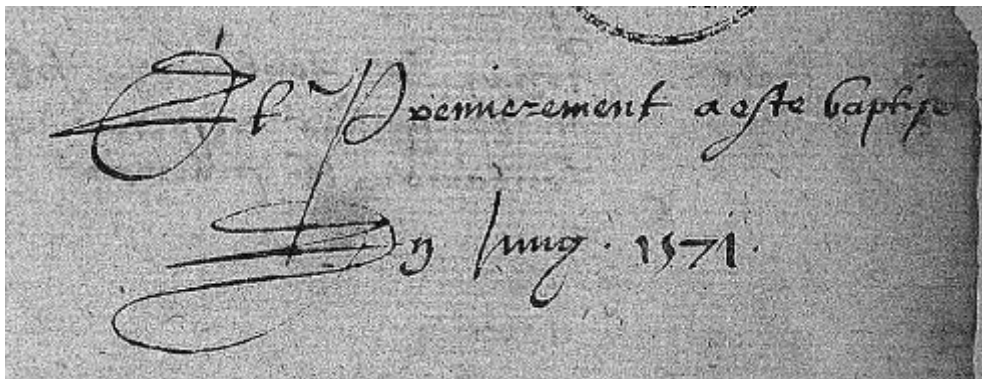 Et Premierement a este baptise
En Juing . 1571 .